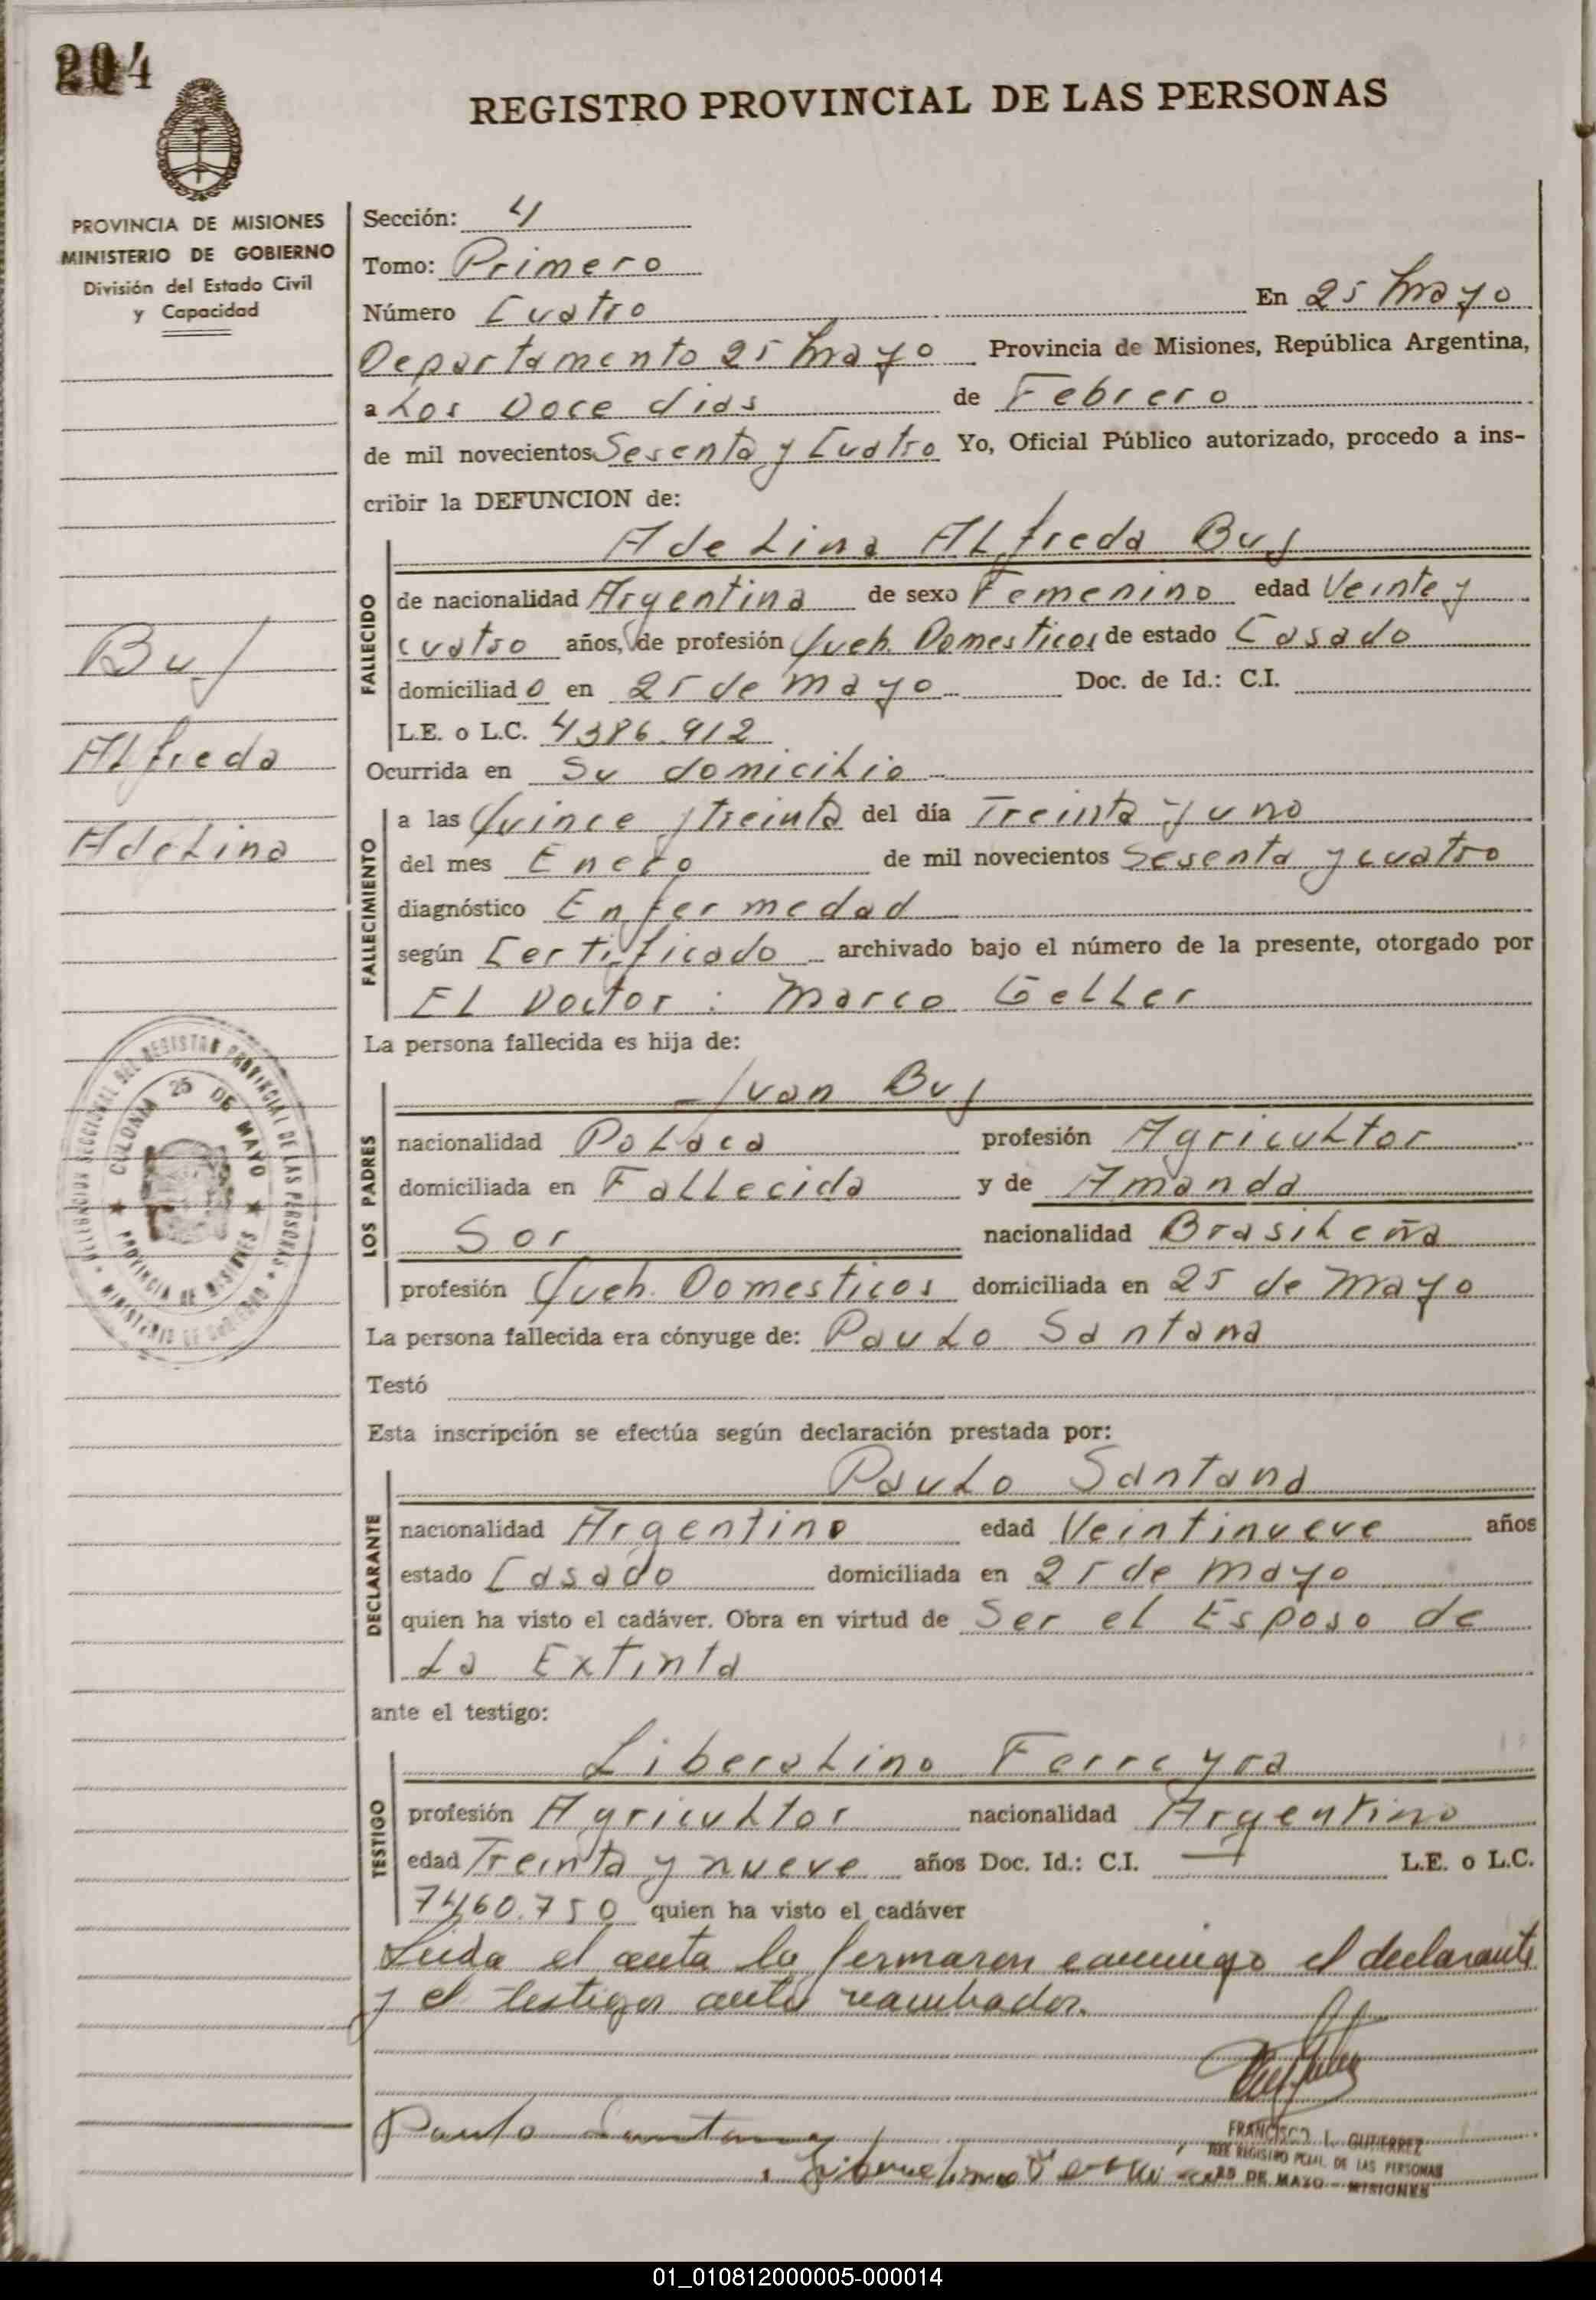 204
REGISTRO PROVINCIAL DE LAS PERSONAS
PROVINCIA DE MISIONES
MINISTERIO DE GOBIERNO
División del Estado Civil
y Capacidad
Sección: 4
Tomo: Primero
Número Cuatro En 25 Mayo
Departamento 25 Mayo Provincia de Misiones, República Argentina,
a Los Doce dias de Febrero
de mil novecientos Sesenta y Cuatro Yo, Oficial Público autorizado, procedo a ins-
cribir la DEFUNCION de:
AdeLina ALfreda Buj
FALLECIDO
de nacionalidad Argentina de sexo Femenino edad Veinte y
cuatro años, de profesión Queh. Domesticos de estado Casado
domiciliado en 25 de mayo Doc. de Id.: C.I.
L.E. o L.C. 4386.912
Ocurrida en Su domiciLio
FALLECIMIENTO
a las Quince y treinta del día Treinta y uno
del mes Enero de mil novecientos Sesenta y cuatro
diagnóstico Enfermedad
según Certificado archivado bajo el número de la presente, otorgado por
EL Doctor: Marco GeLLer
La persona fallecida es hija de:
LOS PADRES
Ivan Buj
nacionalidad PoLaca profesión AgricuLtor
domiciliada en FaLLecido y de Amanda
Sor nacionalidad BrasiLeña
profesión Queh. Domesticos domiciliada en 25 de Mayo
La persona fallecida era cónyuge de: PauLo Santana
Testó
Esta inscripción se efectúa según declaración prestada por:
DECLARANTE
PauLo Santana
nacionalidad Argentino edad Veintinueve años
estado Casado domiciliada en 25 de Mayo
quien ha visto el cadáver. Obra en virtud de Ser el Esposo de
La Extinta
ante el testigo:
TESTIGO
LiberaLino Ferreyra
profesión AgricuLtor nacionalidad Argentino
edad Treinta y nueve años Doc. Id.: C.I. — L.E. o L.C.
7460.750 quien ha visto el cadáver
Leida el acta la fermaron conmigo el declarante
y el testigo
Paulo Santana
FRANCISCO L. GUTIERREZ
JEFE REGISTRO PCIAL. DE LAS PERSONAS
25 DE MAYO - MISIONES
Buj
ALfreda
AdeLina
REGISTRO PROVINCIAL DE LAS PERSONAS
COLONIA 25 DE MAYO
PROVINCIA DE MISIONES
01_010812000005-000014